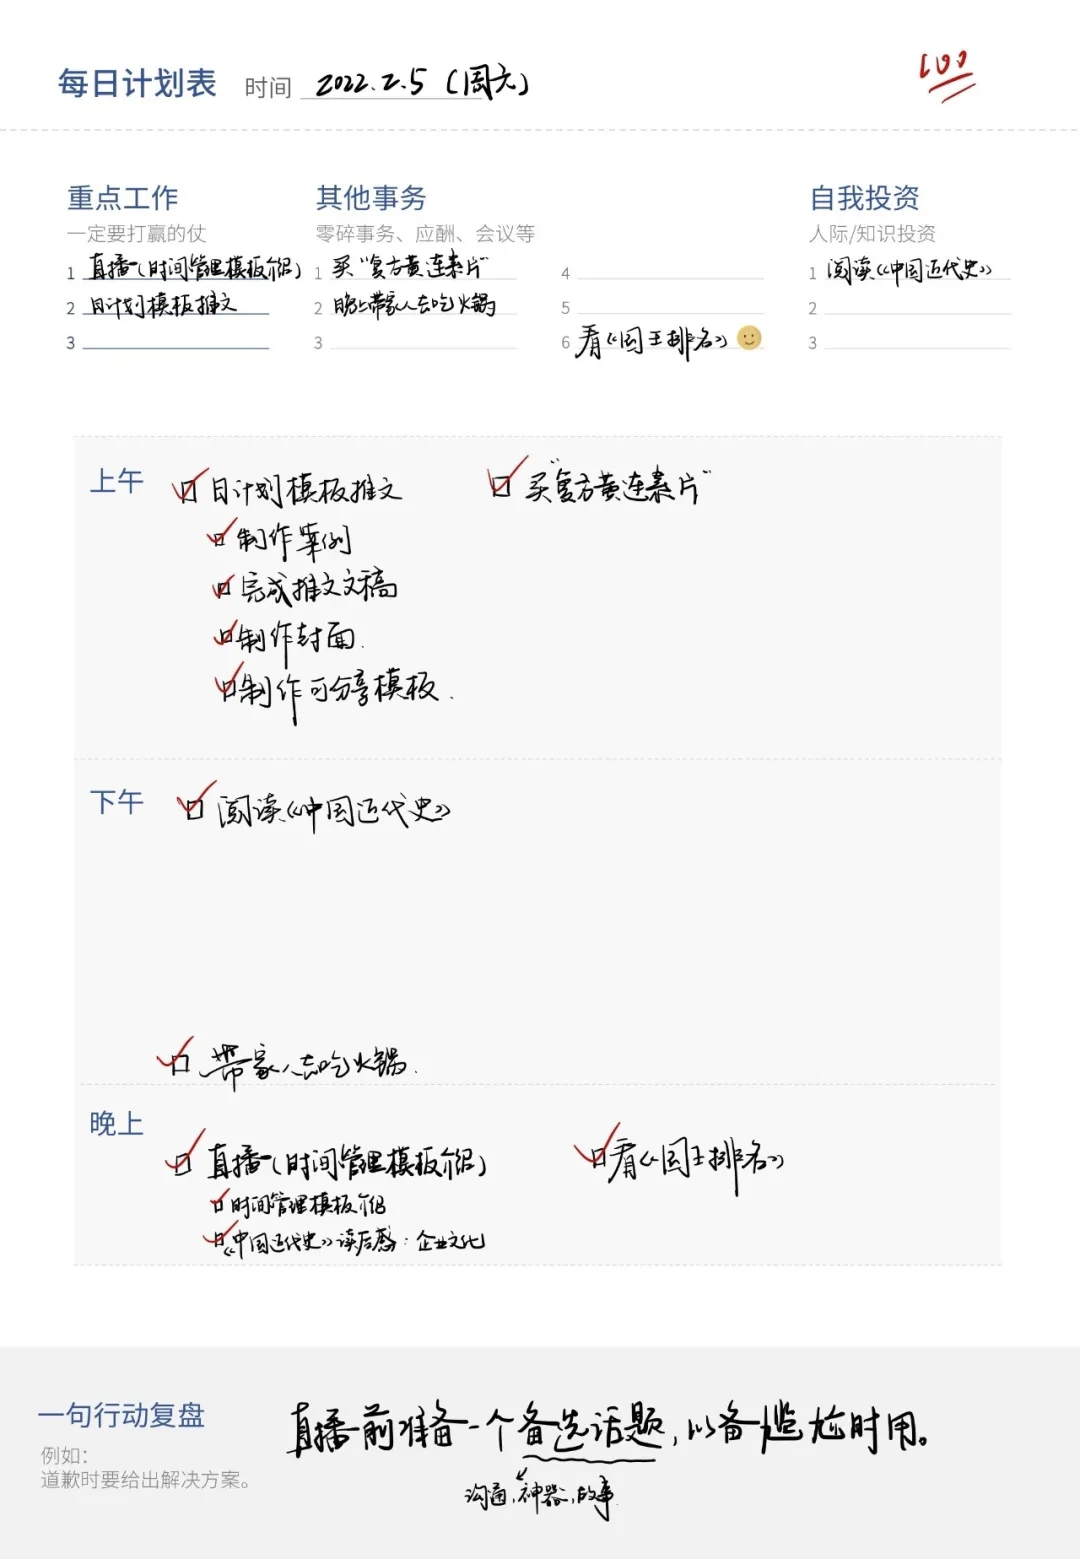 每日计划表 时间 2022.2.5 (周六)
100
重点工作
一定要打赢的仗
1 直播(时间管理模板介绍)
2 日计划模板推文
3
其他事务
零碎事务、应酬、会议等
1 买“复方黄连素片”
2 晚上带家人去吃火锅
3
4
5
6 看《国王排名》
自我投资
人际/知识投资
1 阅读《中国近代史》
2
3
上午
日计划模板推文
制作案例
完成推文文稿
制作封面.
制作可分享模板.
买“复方黄连素片”
下午
阅读《中国近代史》
带家人去吃火锅.
晚上
直播(时间管理模板介绍)
时间管理模板介绍
《中国近代史》读后感:企业文化
看《国王排名》
一句行动复盘
例如:
道歉时要给出解决方案。
直播前准备一个备选话题,以备尴尬时用。
沟通,神器,故事